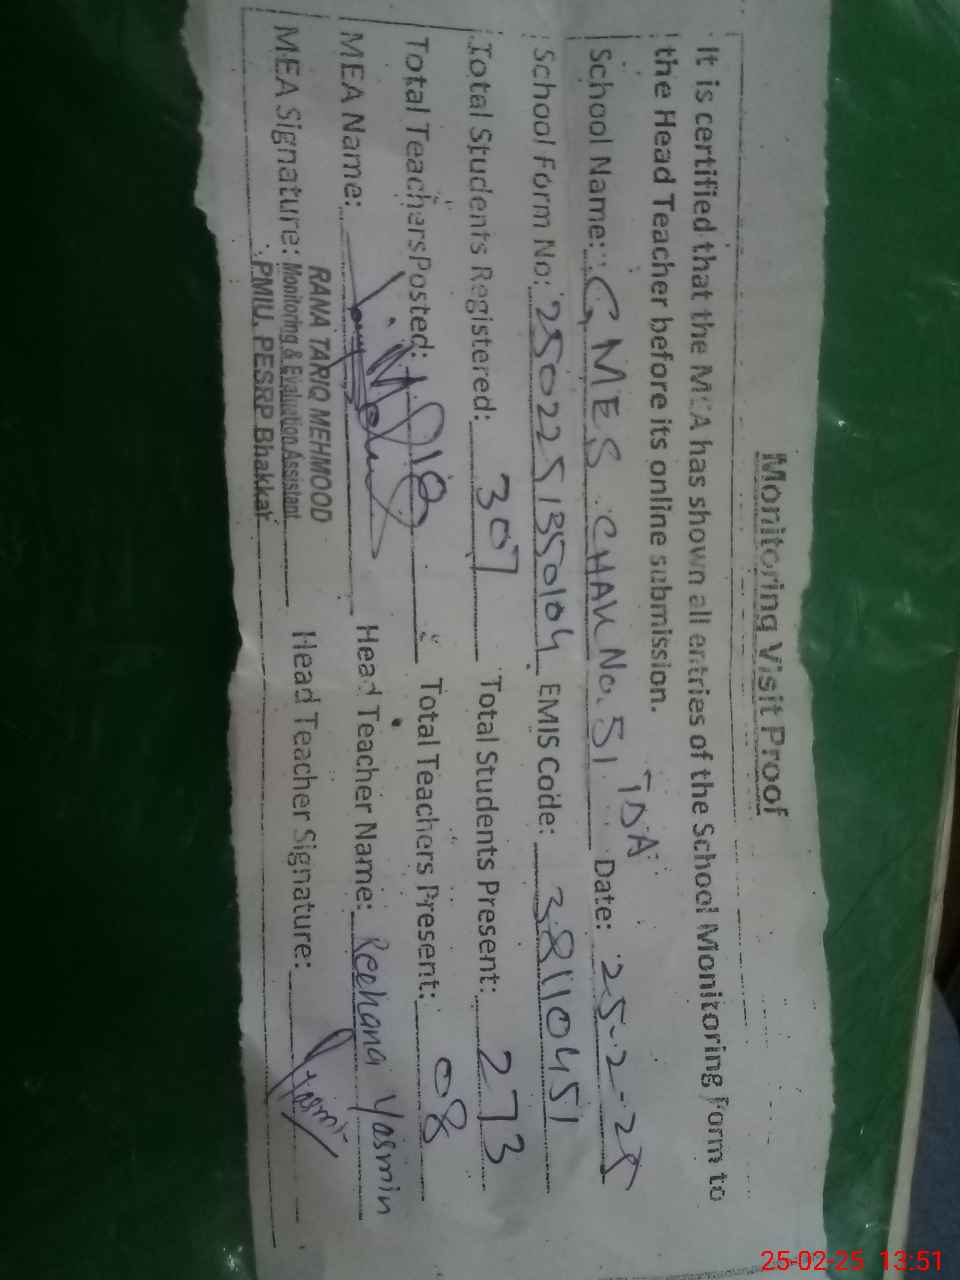 Monitoring Visit Proof
It is certified that the MEA has shown all entries of the School Monitoring Form to
the Head Teacher before its online submission.
School Name: GMES CHAK No. 51 TDA Date: 25-2-25
School Form No: 2502251350104 EMIS Code: 38110451
Total Students Registered: 307 Total Students Present: 273
Total Teachers Posted: 10 Total Teachers Present: 08
MEA Name: Head Teacher Name: Reehana Yasmin
RANA TARIQ MEHMOOD
MEA Signature: Monitoring & Evaluation Assistant Head Teacher Signature: Yasmin
PMIU, PESRP Bhakkar
25-02-25 13:51